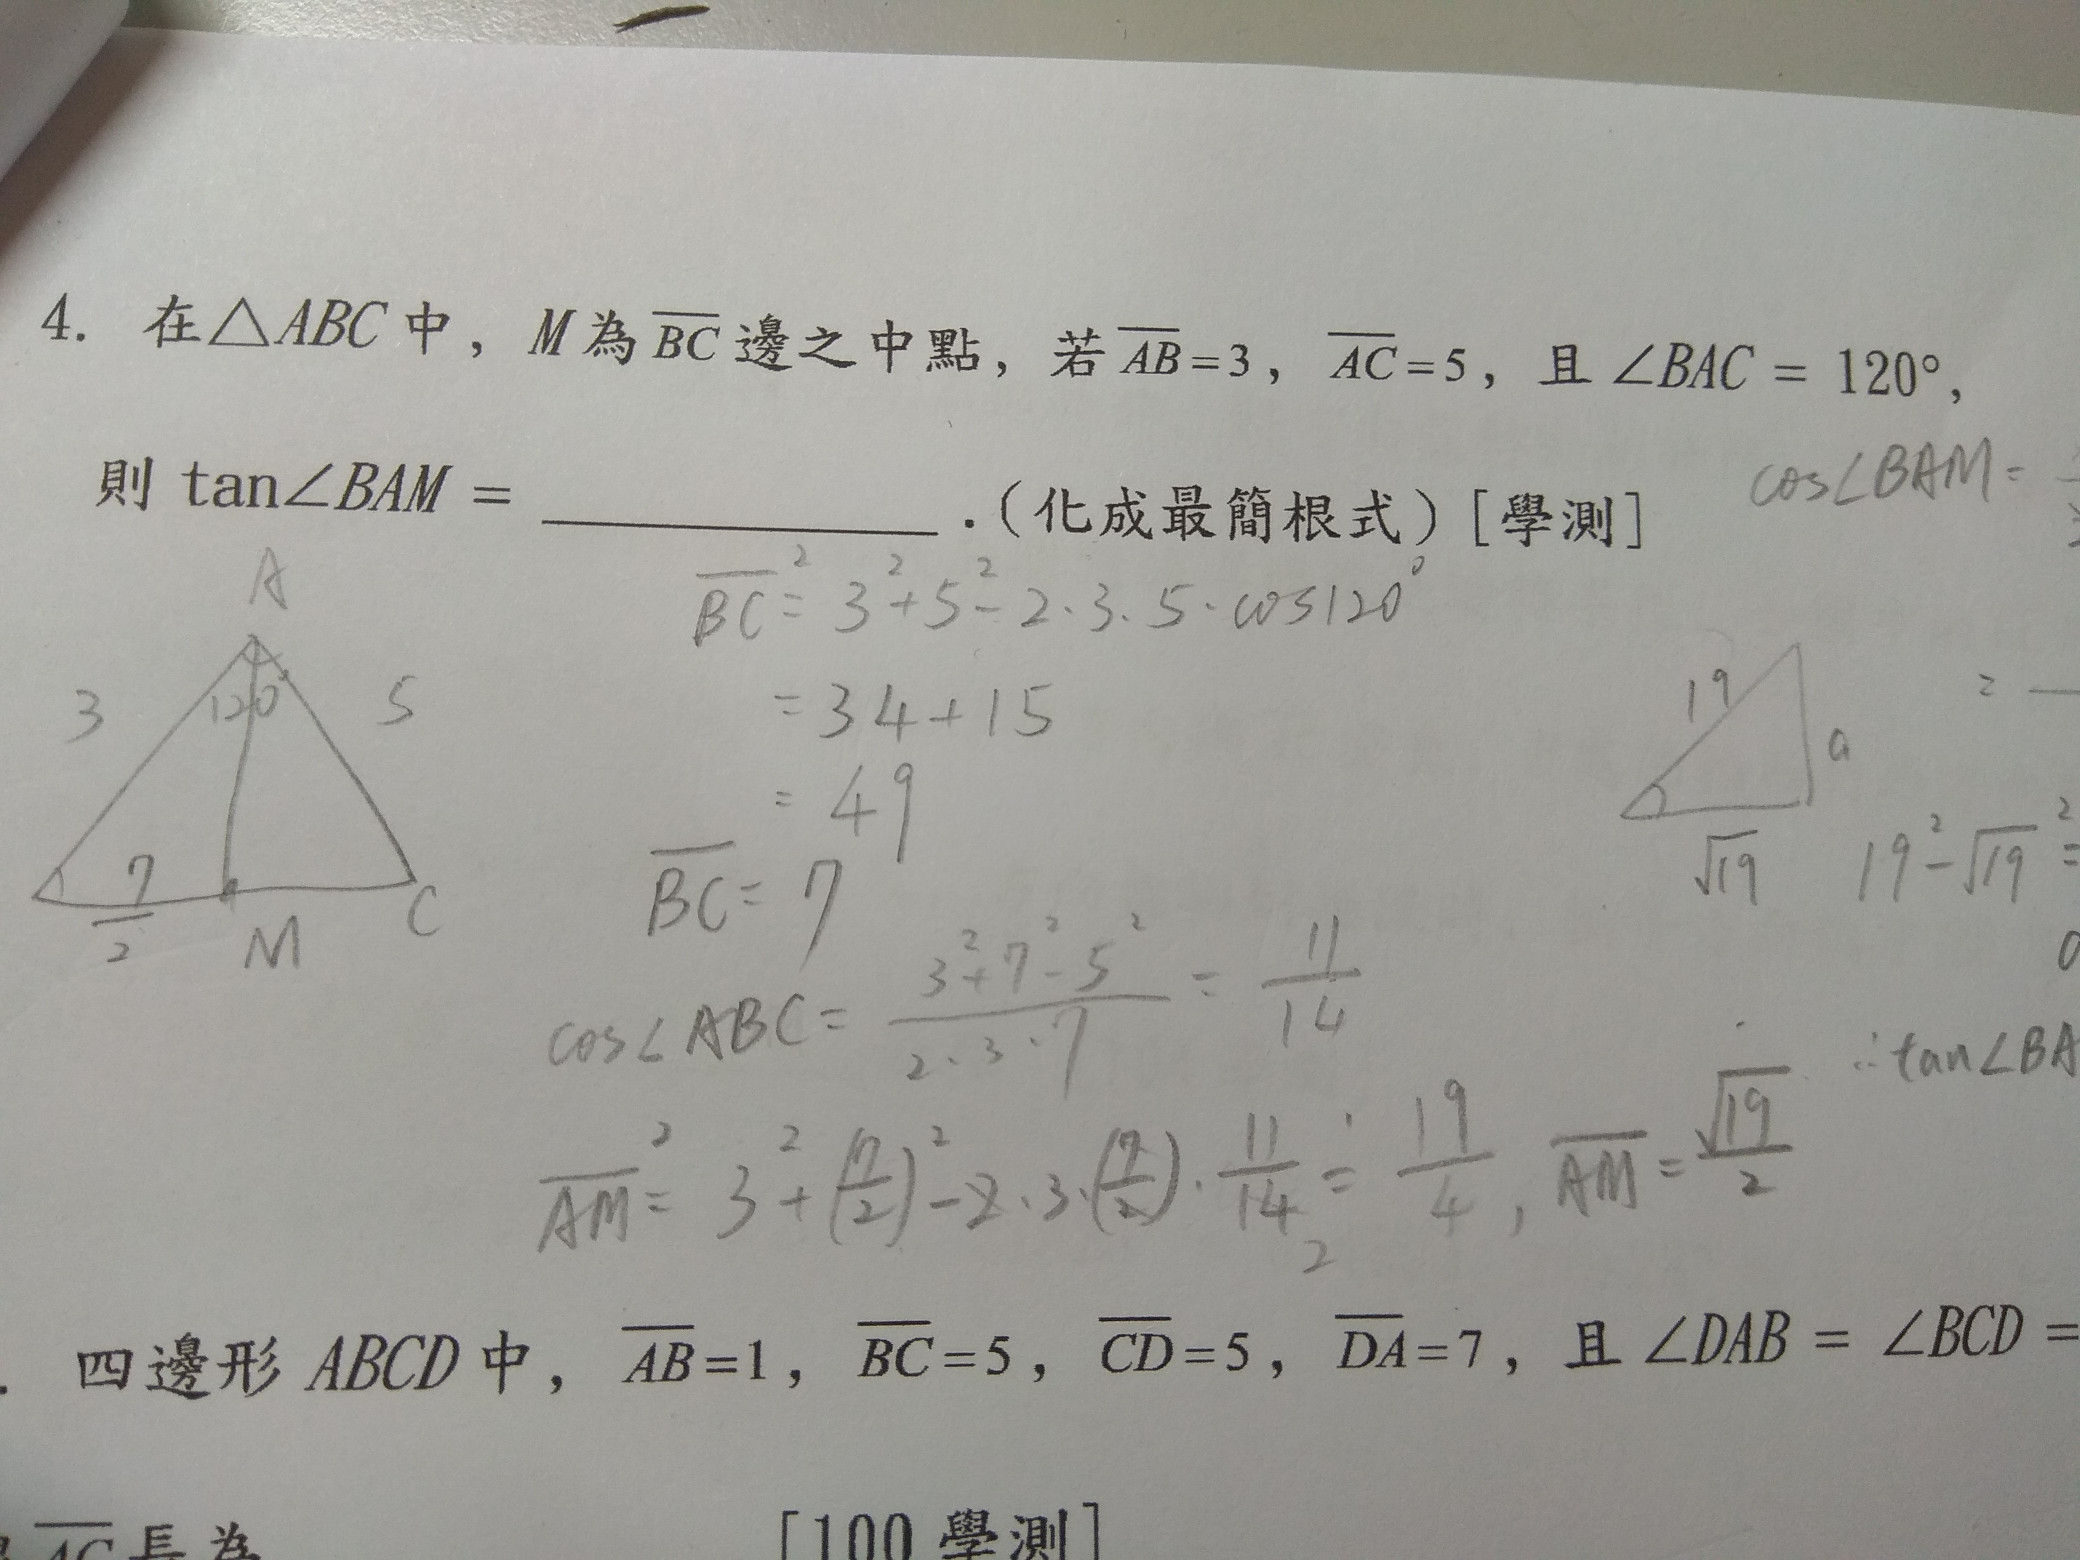 4. 在△ABC中，M為BC邊之中點，若AB=3，AC=5，且∠BAC = 120°，
則 tan∠BAM = ________ .（化成最簡根式）[學測]
cos∠BAM=
A
3
120°
5
7/2
M
C
BC²= 3²+5²-2·3·5·cos120°
= 34+15
= 49
BC= 7
cos∠ABC= (3²+7²-5²)/(2·3·7) = 11/14
AM²= 3²+(7/2)²-2·3·(7/2)·11/14 = 19/4, AM= √19/2
19
a
√19
=
19²-√19²=
∴tan∠BA
四邊形 ABCD 中，AB=1，BC=5，CD=5，DA=7，且 ∠DAB = ∠BCD =
AC 長為
[100 學測]